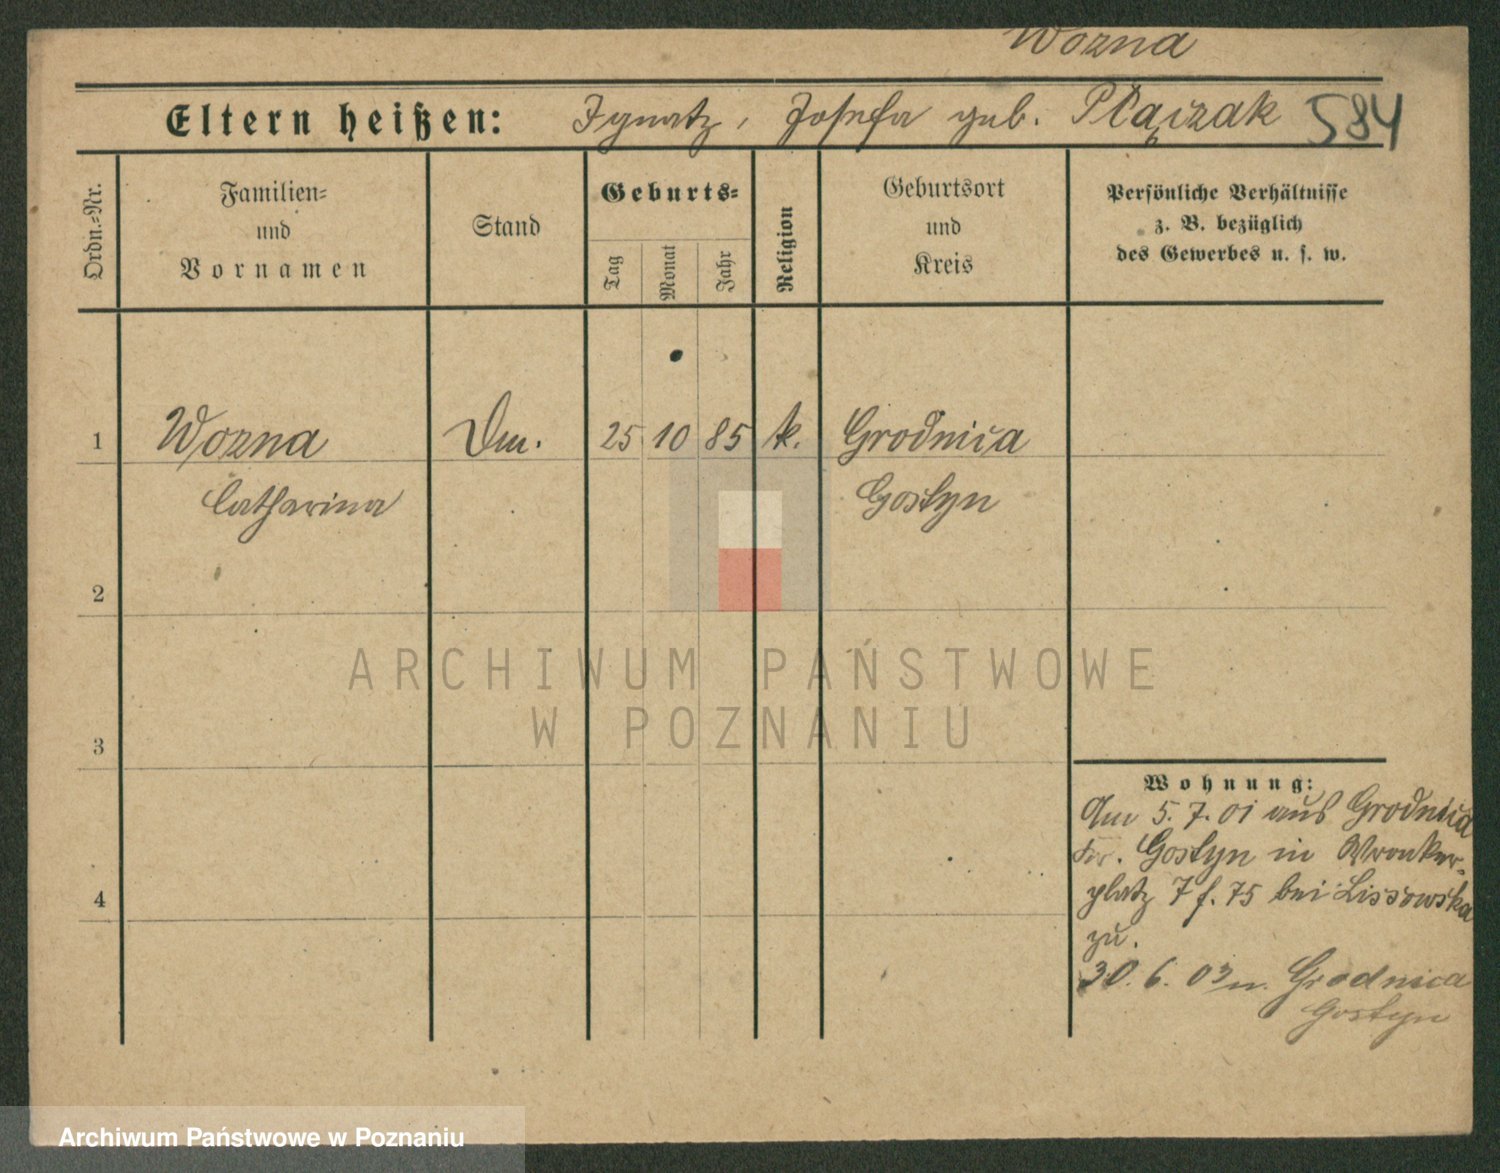 Wozna
Eltern heißen: Ignatz, Josefa geb. Płaczak 584
Ordn.=Nr.
Familien=
und
Vornamen
Stand
Geburts=
Tag
Monat
Jahr
Religion
Geburtsort
und
Kreis
Persönliche Verhältnisse
z. B. bezüglich
des Gewerbes u. s. w.
1 Wozna 25 10 85 k. Grodnica
Catharina Gostyn
2
3
4
Wohnung:
Am 5. 7. 01 aus Grodnica
Kr. Gostyn in Wronker=
platz 7 f. 75 bei Lissowska
zu.
30. 6. 03 n. Grodnica
Gostyn
ARCHIWUM PAŃSTWOWE
W POZNANIU
Archiwum Państwowe w Poznaniu